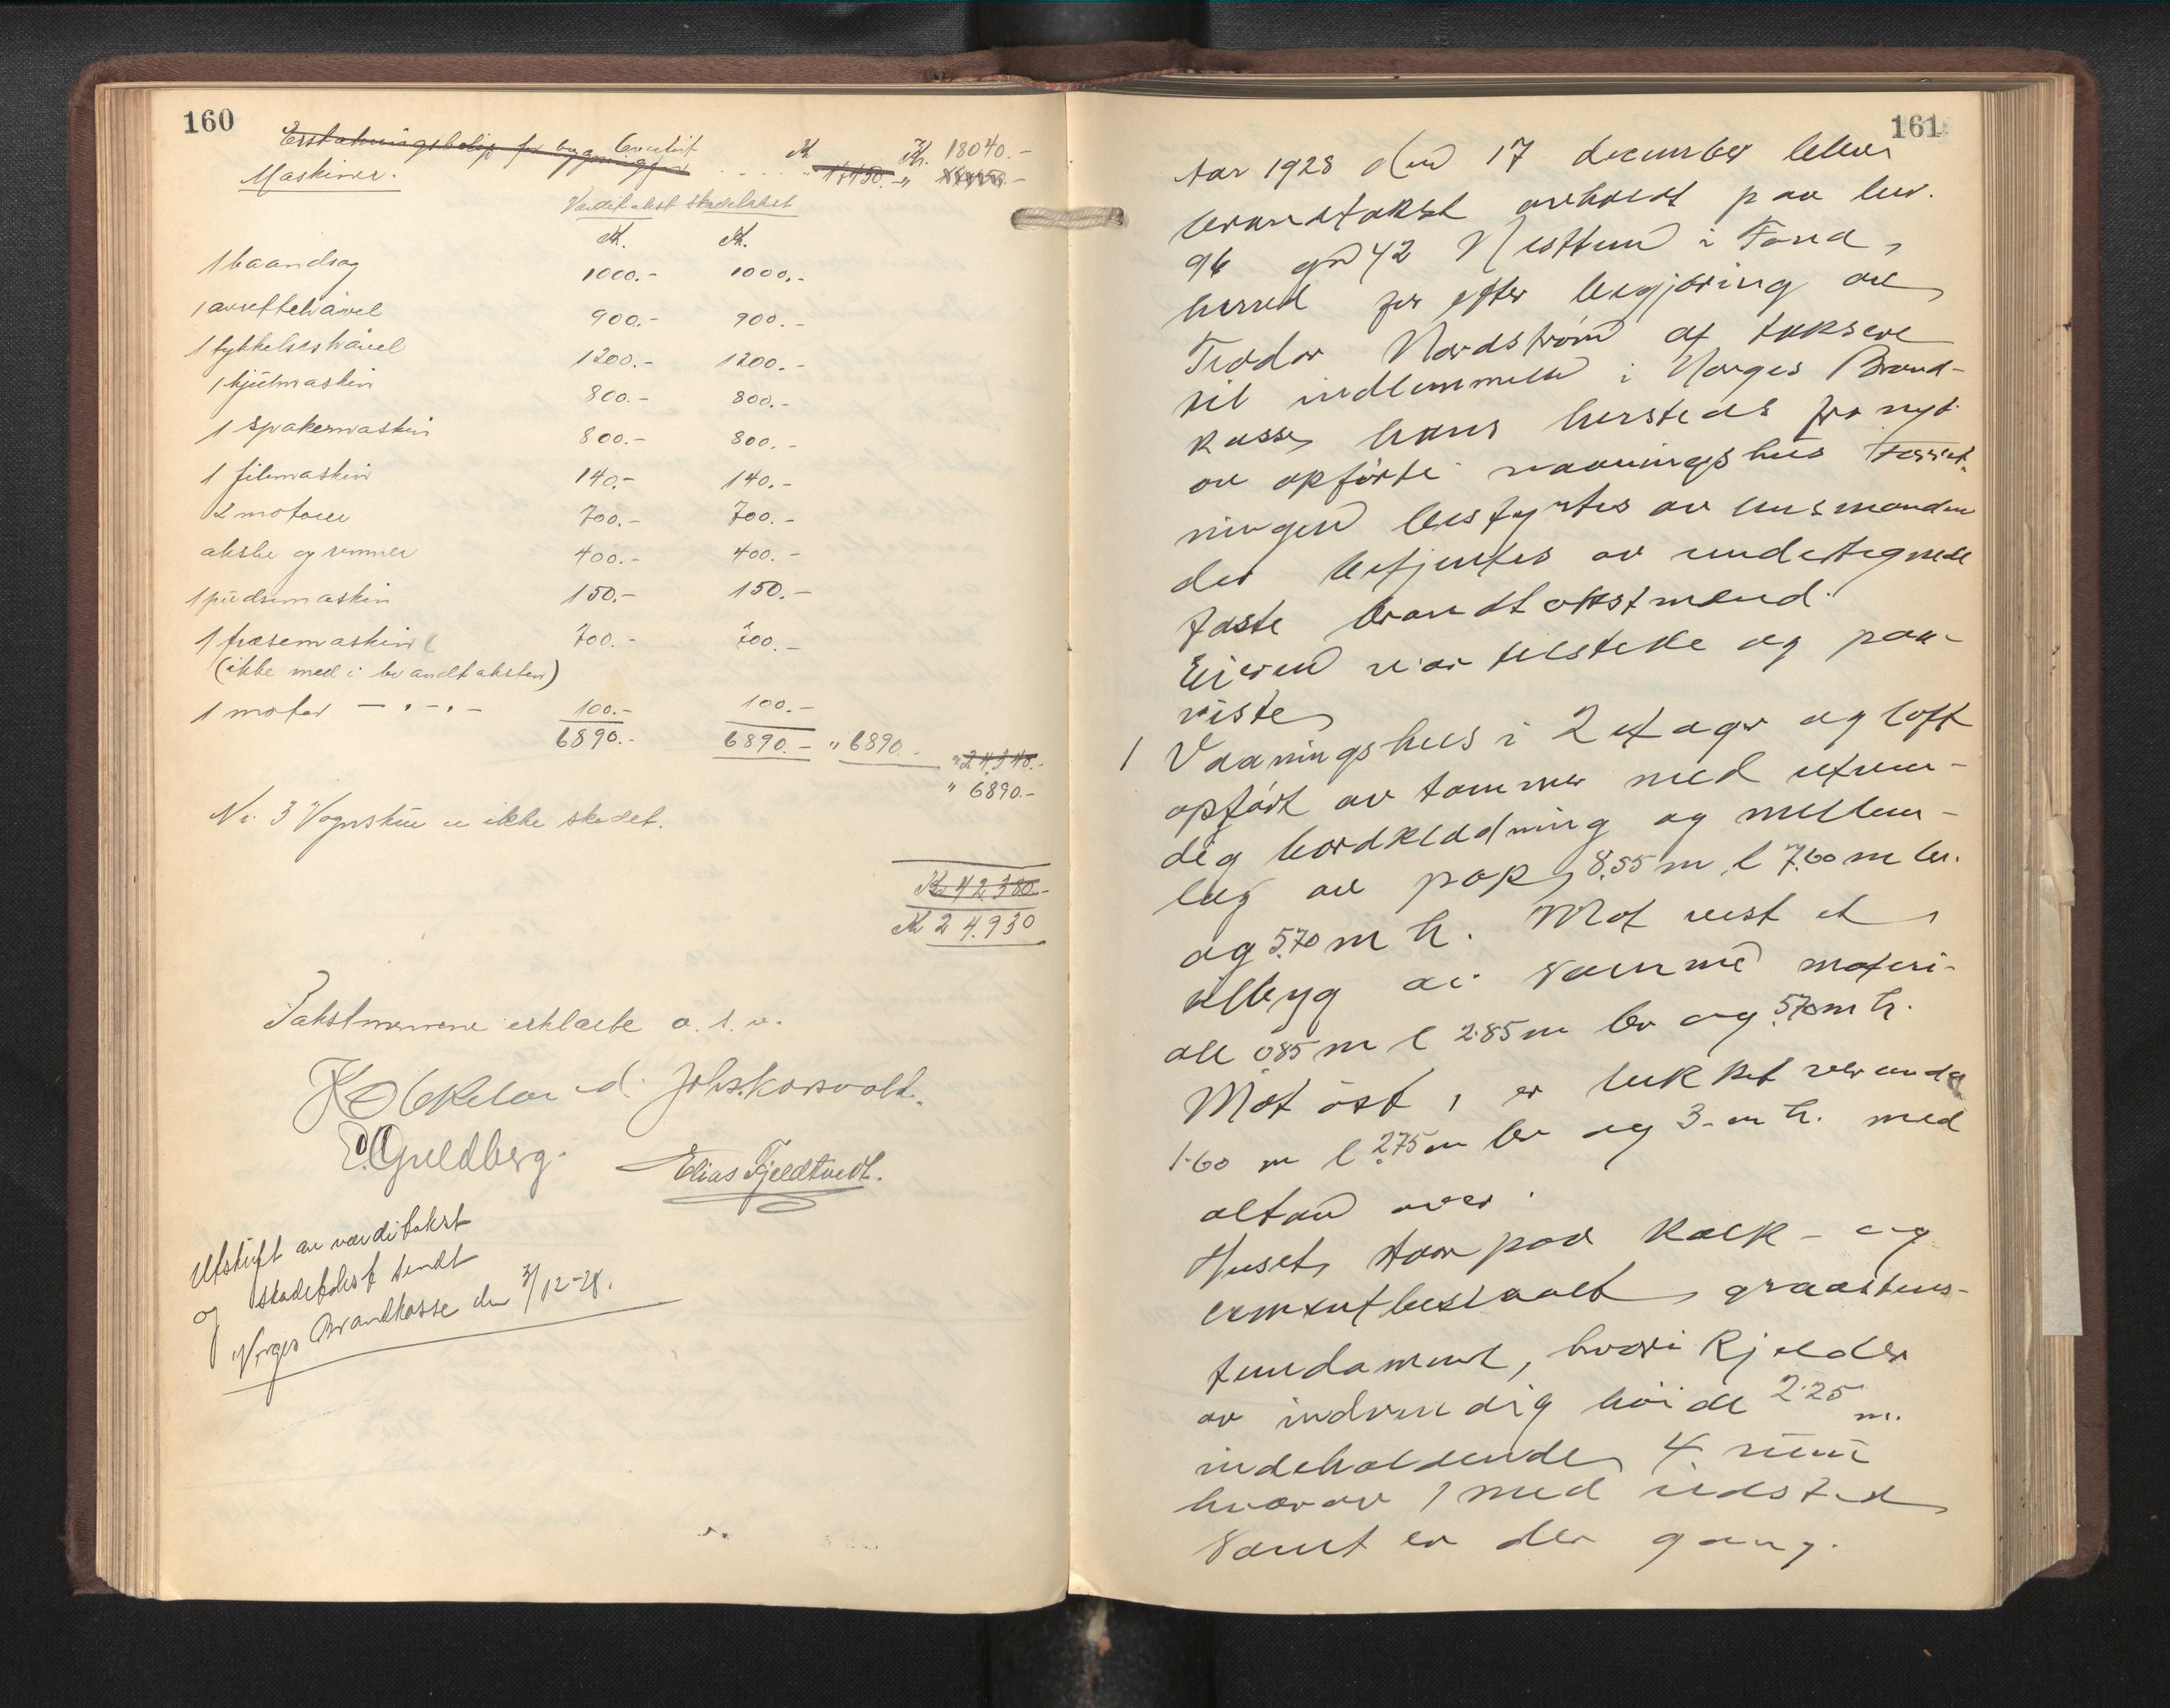 160
Erstatningsbeløp for bygningfor Kr. 18040.-
Maskiner. 17450.-
Verditakst skadetakst
Kr. Kr.
1 baandsag 1000.- 1000.-
1 avrettehøvel 900.- 900.-
1 tykkelseshøvel 1200.- 1200.-
1 hjulmaskin 800.- 800.-
1 spakermaskin 800.- 800.-
1 filemaskin 140.- 140.-
2 motorer 700.- 700.-
aksler og remmer 400.- 400.-
1 pudsemaskin 150.- 150.-
1 fræsemaskin 700.- 700.-
(ikke med i brandtaksten)
1 motor — . — . — 100.- 100.-
6890.- 6890.- " 6890.-
" 24.340.-
" 6890.-
Nr. 3 Vognskur er ikke skadet.
Kr 42.380.-
Kr 24.930
Takstmennene erklærte o. s. v.
Johs. Korsvold.
O. Guldberg. Elias Fjeldtvedt.
Utskrift av verditakst
og skadetakst sendt
Norges Brandkasse den 3/12-28.
161
Aar 1928 den 17 december blev
brandtakst avholdt paa br.
96 gn 42 Nesttun i Fana
herred for efter begjæring av
Teodor Nordstrøm at taksere
til indlemmelse i Norges Brand-
kasse hans hersteds fra nyt
av opførte vaaningshus Forret-
ningen bestyrtes av lensmanden
der betjentes av undertegnede
faste brandtakstmænd.
Eieren var tilstede og paa-
viste
1 Vaaningshus i 2 etager og loft
opført av tømmer med utven-
dig bordklædning og mellem-
læg av pap, 8.55 m l 7.60 m br.
og 5.70 m h. Mot vest et
tilbyg av samme materi-
ale 0.85 m l 2.85 m br og 5.70 m h.
Mot øst, er lukket veranda
1.60 m l 2.75 m br og 3- m h. med
altan over.
Huset staar paa kalk- og
cementbeslaaet graastens-
fundament, hvori kjelder
av indvendig høide 2.25 m.
indeholdende 4 rum
hvorav 1 med ildsted
samt er der gang.